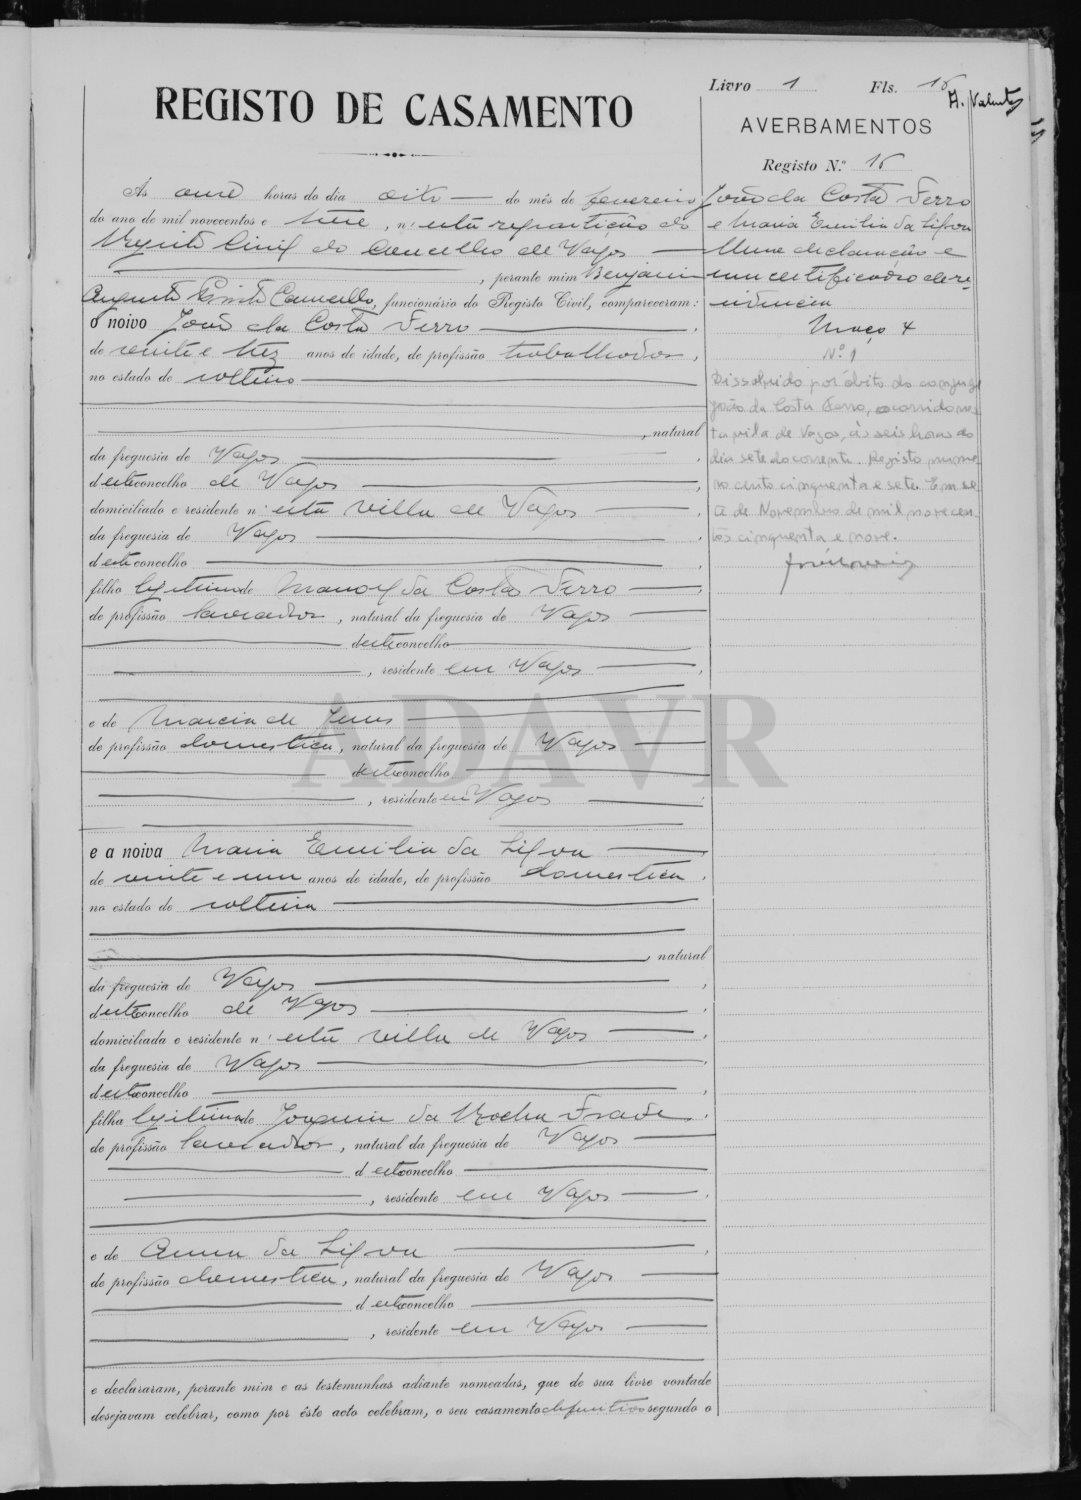 Livro 1 Fls. 15
A. Valente
REGISTO DE CASAMENTO
AVERBAMENTOS
Registo N.º 15
Ás onze horas do dia oito do mês de fevereiro
do ano de mil novecentos e treze, n'esta repartição do
Registo Civil do Concelho de Vagos
, perante mim Benjamim
Augusto Camello, funcionário do Registo Civil, compareceram:
o noivo João da Costa Ferro,
de vinte e trez anos de idade, de profissão trabalhador,
no estado de solteiro
, natural
da freguesia de Vagos,
d'este concelho de Vagos,
domiciliado e residente n'esta villa de Vagos,
da freguesia de Vagos,
d'este concelho,
filho legitimo de Manoel da Costa Ferro,
de profissão lavrador, natural da freguesia de Vagos
d'este concelho
, residente em Vagos,
e de Maria de Jesus
de profissão domestica, natural da freguesia de Vagos
d'este concelho
, residente em Vagos
e a noiva Maria Emilia da Silva,
de vinte e um anos de idade, de profissão domestica,
no estado de solteira
, natural
da freguesia de Vagos,
d'este concelho de Vagos,
domiciliada e residente n'esta villa de Vagos,
da freguesia de Vagos,
d'este concelho,
filha legitima de Joaquim da Rocha Frade,
de profissão lavrador, natural da freguesia de Vagos
d'este concelho
, residente em Vagos,
e de Anna da Silva,
de profissão domestica, natural da freguesia de Vagos
d'este concelho
, residente em Vagos,
e declararam, perante mim e as testemunhas adiante nomeadas, que de sua livre vontade
desejavam celebrar, como por êste acto celebram, o seu casamento definitivo segundo o
João da Costa Ferro
e Maria Emilia da Silva
Uma declaração e
um certificado de re-
sidencia
Maço 4
N.º 1
Dissolvido por óbito do conjuge
João da Costa Ferro, ocorrido nes-
ta vila de Vagos, ás seis horas do
dia sete do corrente. Registo nume-
ro cento cinquenta e sete. Em se-
te de Novembro de mil novecen-
tos cinquenta e nove.
ADAVR